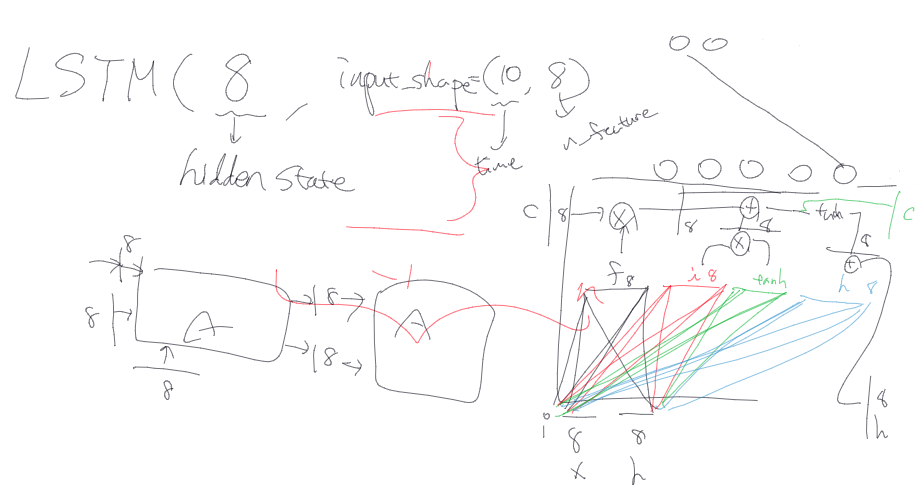 LSTM( 8 , input_shape=(10, 8)
hidden state
time
n_feature
C 8
8
8
tanh
C
8
f 8
i 8
tanh
h 8
8
8
A
8
8
8
A
8
h
1
8
8
x
h